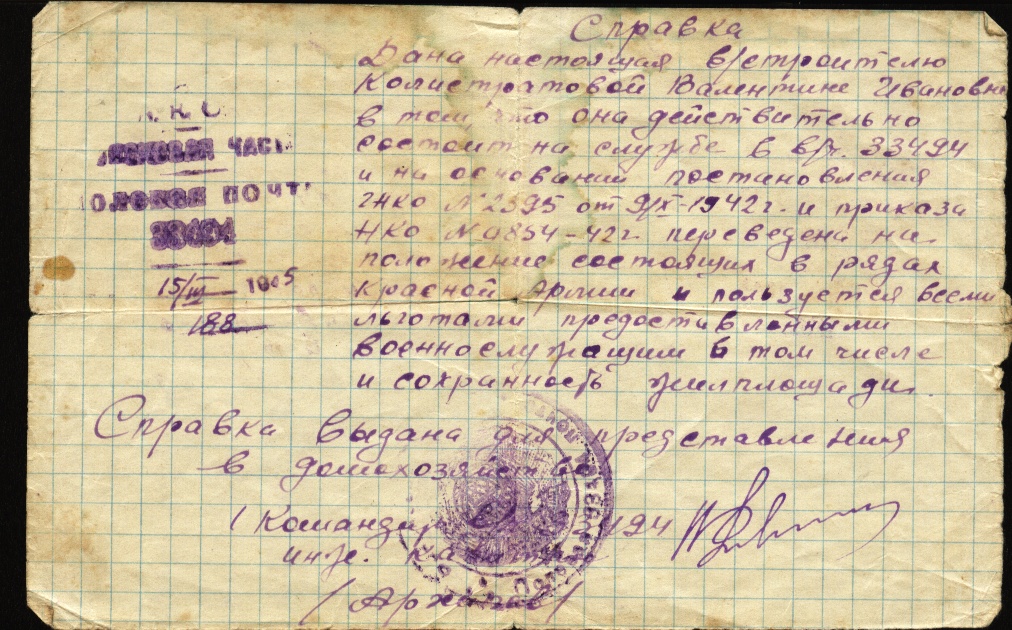 Справка
Дана настоящая в/строителю
Колистратовой Валентине Ивановне
в том что она действительно
состоит на службе в в/ч. 33494
и на основании постановления
ГКО № 2395 от 9/IX-1942г. и приказа
НКО № 0854-42г. переведена на
положение состоящих в рядах
Красной Армии и пользуется всеми
льготами предоставленными
военнослужащим в том числе
и сохранность жилплощади.
ПОЛЕВАЯ ПОЧТА
33494
15/III 1945
188
Справка выдана для представления
в домохозяйство
Командир
инж. капитан